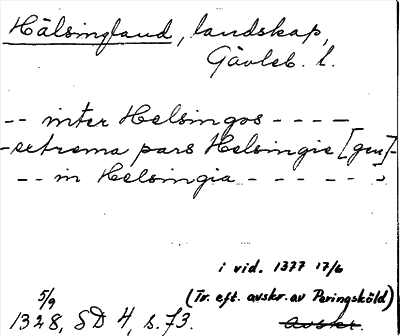 Hälsingland, landskap,
Gävleb. l.
-- inter Helsingos ----
-extrema pars Helsingie [gen]-
-- in Helsingia -----
i vid. 1377 17/6
5/9 (Tr. eft. avskr. av Peringsköld)
1328, SD 4, s. 73. Avskr.